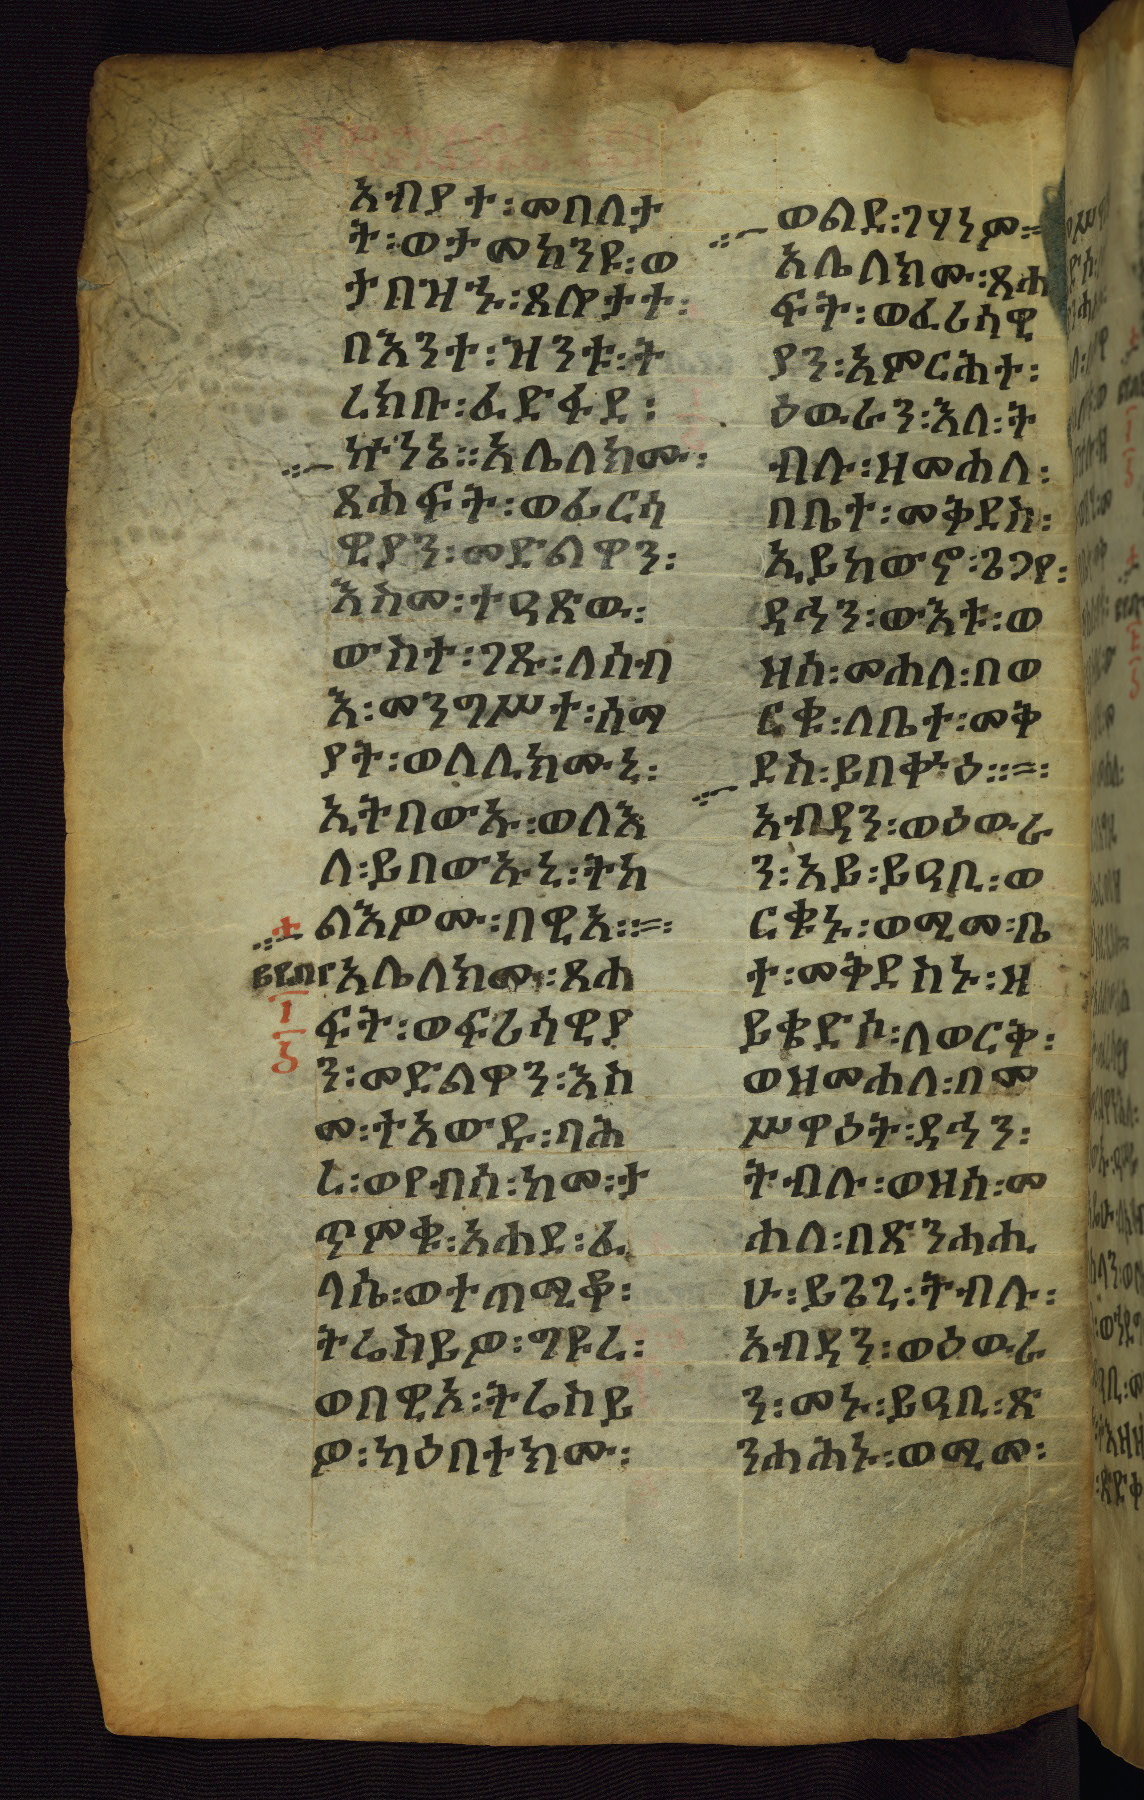 አብያተ፡መበለታ
ት፡ወታመክንዩ፡ወ
ታበዝኁ፡ጸሎታተ፡
በእንተ፡ዝንቱ፡ት
ረክቡ፡ፈድፋደ፡
ኵነኔ፡፡አሌለክሙ፡
ጸሐፍት፡ወፈርሳ
ዊያን፡መድልዋን፡
እስመ፡ተዓጽዉ፡
ውስተ፡ገጹ፡ለሰብ
እ፡መንግሥተ፡ሰማ
ያት፡ወለሊክሙኒ፡
ኢትበውኡ፡ወለእ
ለ፡ይበውኡኒ፡ትከ
ልእዎሙ፡በዊአ፡፡
አሌለክሙ፡ጸሐ
ፍት፡ወፍሬሳዊያ
ን፡መድልዋን፡እስ
መ፡ተአውዱ፡ባሕ
ረ፡ወየብሰ፡ከመ፡ታ
ጥምቁ፡አሐደ፡ፈ
ላሴ፡ወተጠሚቆ፡
ትሬስይዎ፡ግዩረ፡
ወበዊአ፡ትሬስይ
ዎ፡ካዕበተክሙ፡
ወልደ፡ገሃነም፡
አሌለክሙ፡ጸሐ
ፍት፡ወፈሪሳዊ
ያን፡እምርሕተ፡
ዕዉራን፡እለ፡ት
ብሉ፡ዘመሐለ፡
በቤተ፡መቅደስ፡
ኢይከውኖ፡ጌጋየ፡
ዳኅን፡ውእቱ፡ወ
ዘሰ፡መሐለ፡በወ
ርቁ፡ለቤተ፡መቅ
ደስ፡ይበቍዕ፡፡
አብዳን፡ወዕዉራ
ን፡አይ፡ይዓቢ፡ወ
ርቁኑ፡ወሚመ፡ቤ
ተ፡መቅደስኑ፡ዘ
ይቄድሶ፡ለወርቅ፡
ወዝመሐለ፡በመ
ሥዋዕት፡ዳኅን፡
ትብሉ፡ወዝሰ፡መ
ሐለ፡በጽንሐሒ
ሁ፡ይጌጊ፡ትብሉ፡
አብዳን፡ወዕዉራ
ን፡መኑ፡ይዓቢ፡ጽ
ንሐሕኑ፡ወሚመ፡